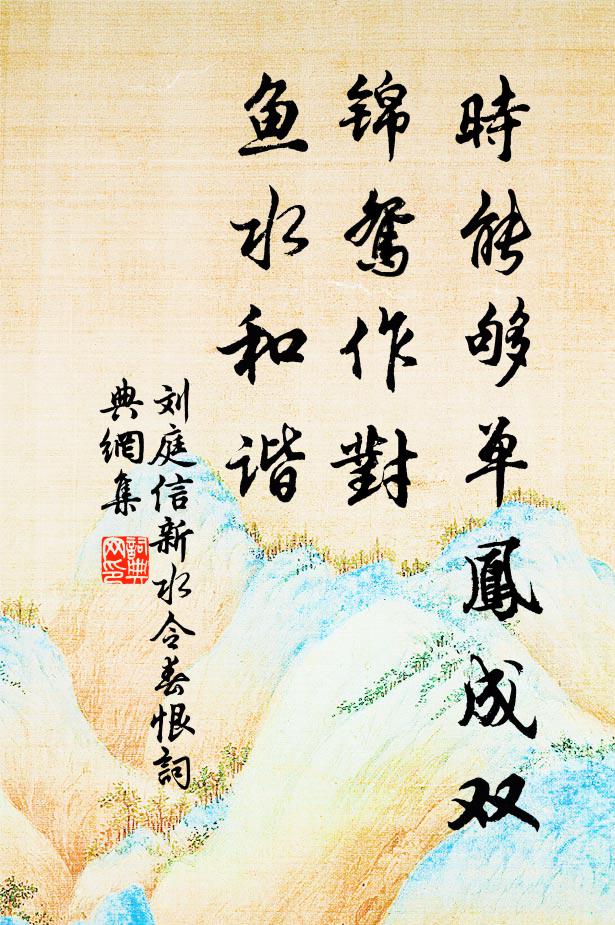 時能够单鳳成双
锦鸳作對
鱼水和谐
刘庭信新水令春恨词
典網集
詞典
网印